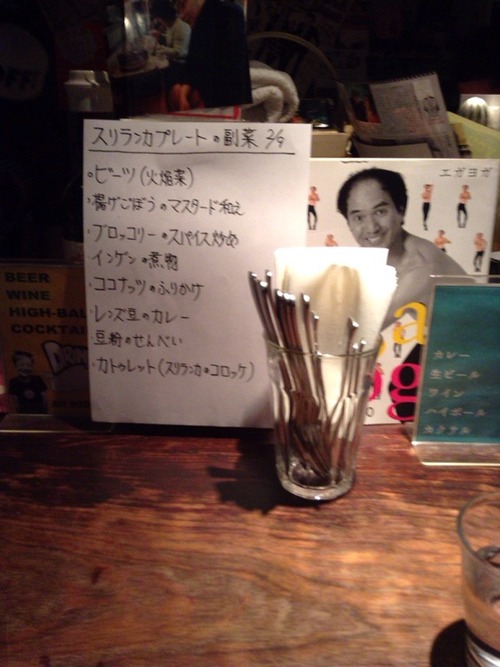 スリランカプレートの副菜 2/9
ビーツ(火焔菜)
揚げごぼうのマスタード和え
ブロッコリーのスパイス炒め
インゲンの煮物
ココナッツのふりかけ
レンズ豆のカレー
豆粉のせんべい
カトゥレット(スリランカのコロッケ)
エガヨガ
BEER
WINE
HIGH-BAL
COCKTA
カレー
生ビール
ワイン
ハイボール
カクテル